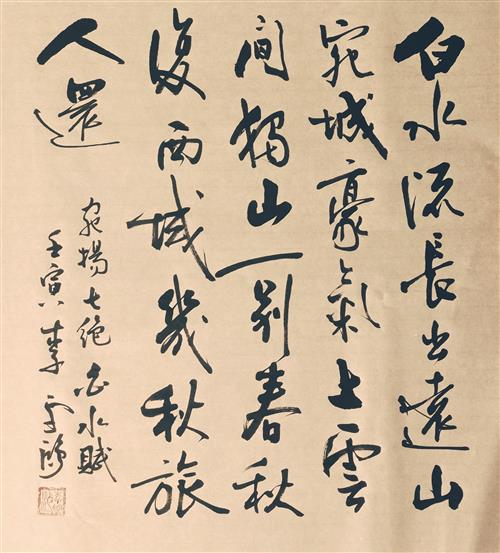 白水流長出遠山
宛城豪氣上雲
間獨山一别春秋
復西域幾秋旅
人還
宛揚七絶白水賦
壬寅李